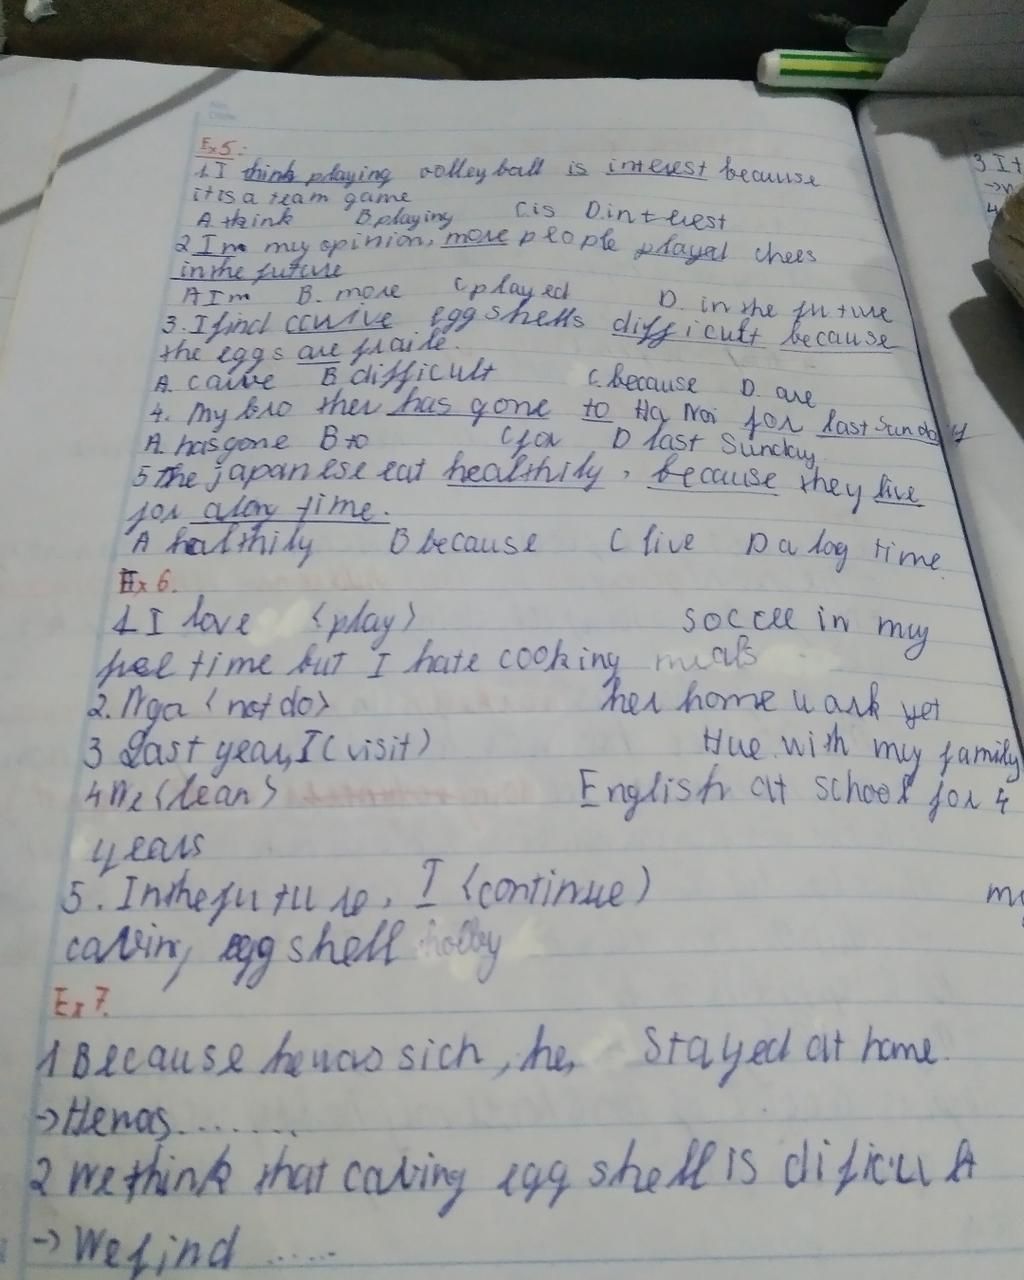 Ex5:
1. I think playing volleyball is interest because
it is a team game
A. think B. playing C. is D. interest
2. Im my opinion, more people played chees
in the future
A Im B. more C played D. in the future
3. I find carve egg shells difficult because
the eggs are
A. carve B. difficult C. because D. are
4. My bro ther has gone to Ha Noi for last Sunday
A. has gone B to C for D last Sunday
5 The japanese eat healthily, because they live
for a long time.
A healthily B because C live D a log time.
Ex 6.
1 I love (play) soccer in my
free time but I hate cooking meals
2. Nga (not do) her home work yet
3 Last year, I (visit) Hue with my family
4 We (lean) English at school for 4
years
5. In the future, I (continue) my
caving egg shell hobby
Ex 7.
1 Because he was sich, he, stayed at home.
→ He was.......
2 We think that caving egg shell is dificult
→ We find .....
3 It
→
4